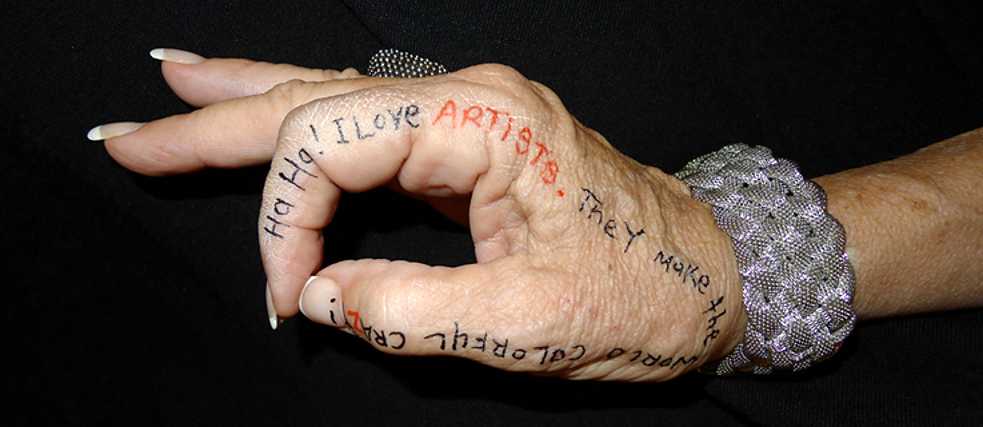 Ha Ha! I Love ARTISTS. TheY Make the WORLD COLORFUL CRAZY!